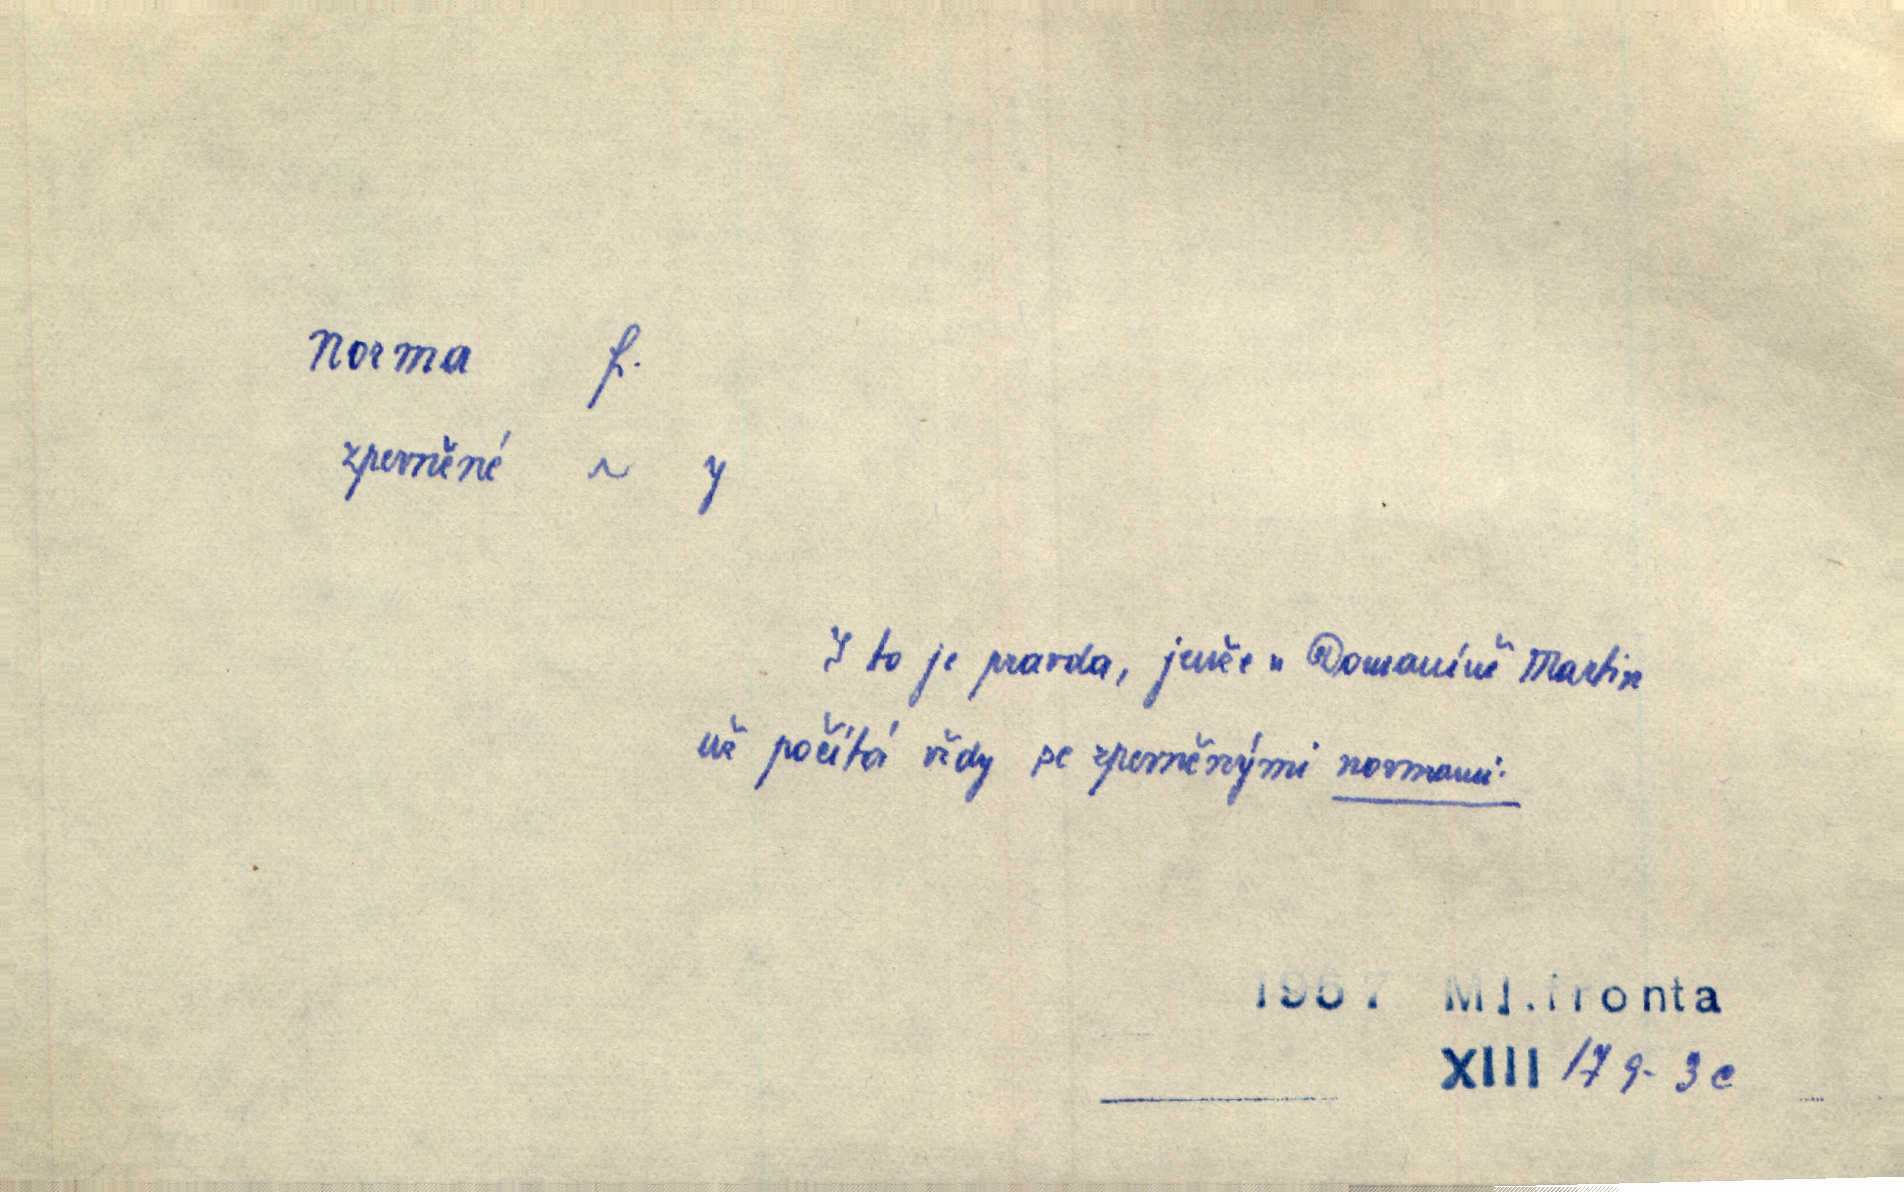 Norma f.
zpevněné ~ y
I to je pravda, jenže u Domanínů Martin
už počítá vždy se zpevněnými normami.
1957 Ml.fronta
XIII 179-3c